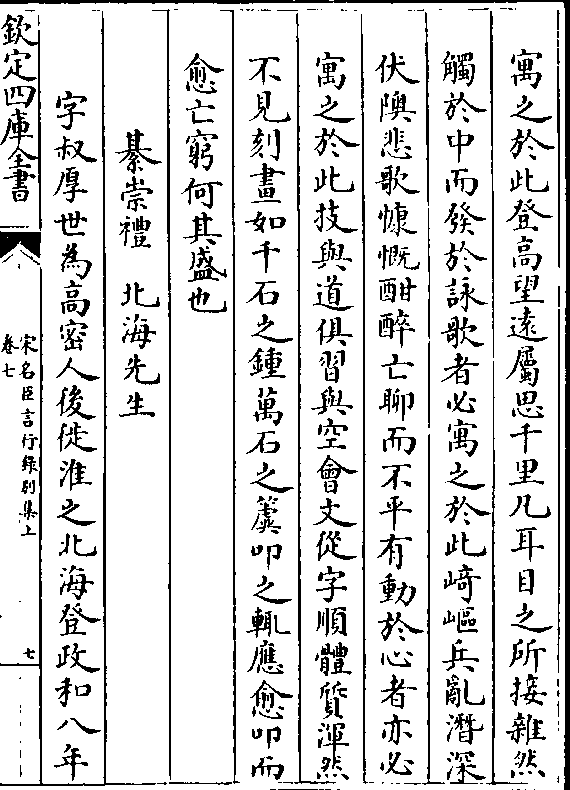 寓之於此登高望遠屬思千里凡耳目之所接雜然
觸於中而發於詠歌者必寓之於此﨑嶇兵亂潛深
伏隩悲歌慷慨酣醉亡聊而不平有動於心者亦必
寓之於此技與道俱習與空會文從字順體質渾然
不見刻畫如千石之鍾萬石之簴叩之輒應愈叩而
愈亡窮何其盛也
綦崇禮 北海先生
字叔厚世為高密人後徙淮之北海登政和八年
欽定四庫全書
宋名臣言行録别集上
卷七
七